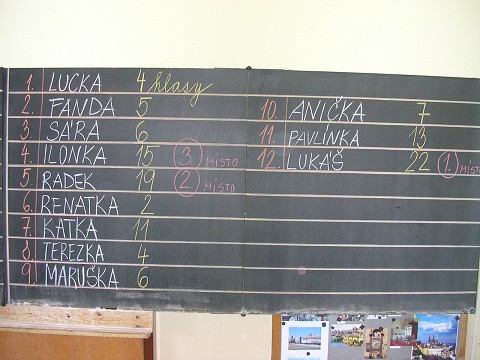 1. LUCKA 4 hlasy
2. FANDA 5
3. SÁRA 6
4. ILONKA 15 3. MÍSTO
5. RADEK 19 2. MÍSTO
6. RENATKA 2
7. KATKA 11
8. TEREZKA 4
9. MARUŠKA 6
10. ANIČKA 7
11. PAVLÍNKA 13
12. LUKÁŠ 22 1. MÍSTO